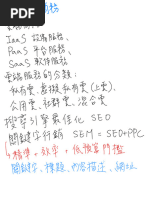 務
IaaS 設備服務、
PaaS 平台服務、
SaaS 軟件服務
雲端服務的分類：
私有雲、虛擬私有雲(上雲)、
公用雲、社群雲、混合雲
搜尋引擎最佳化 SEO
關鍵字行銷 SEM = SEO+PPC
精準、效率、低預算門檻
關鍵字、標題、內容描述、網址